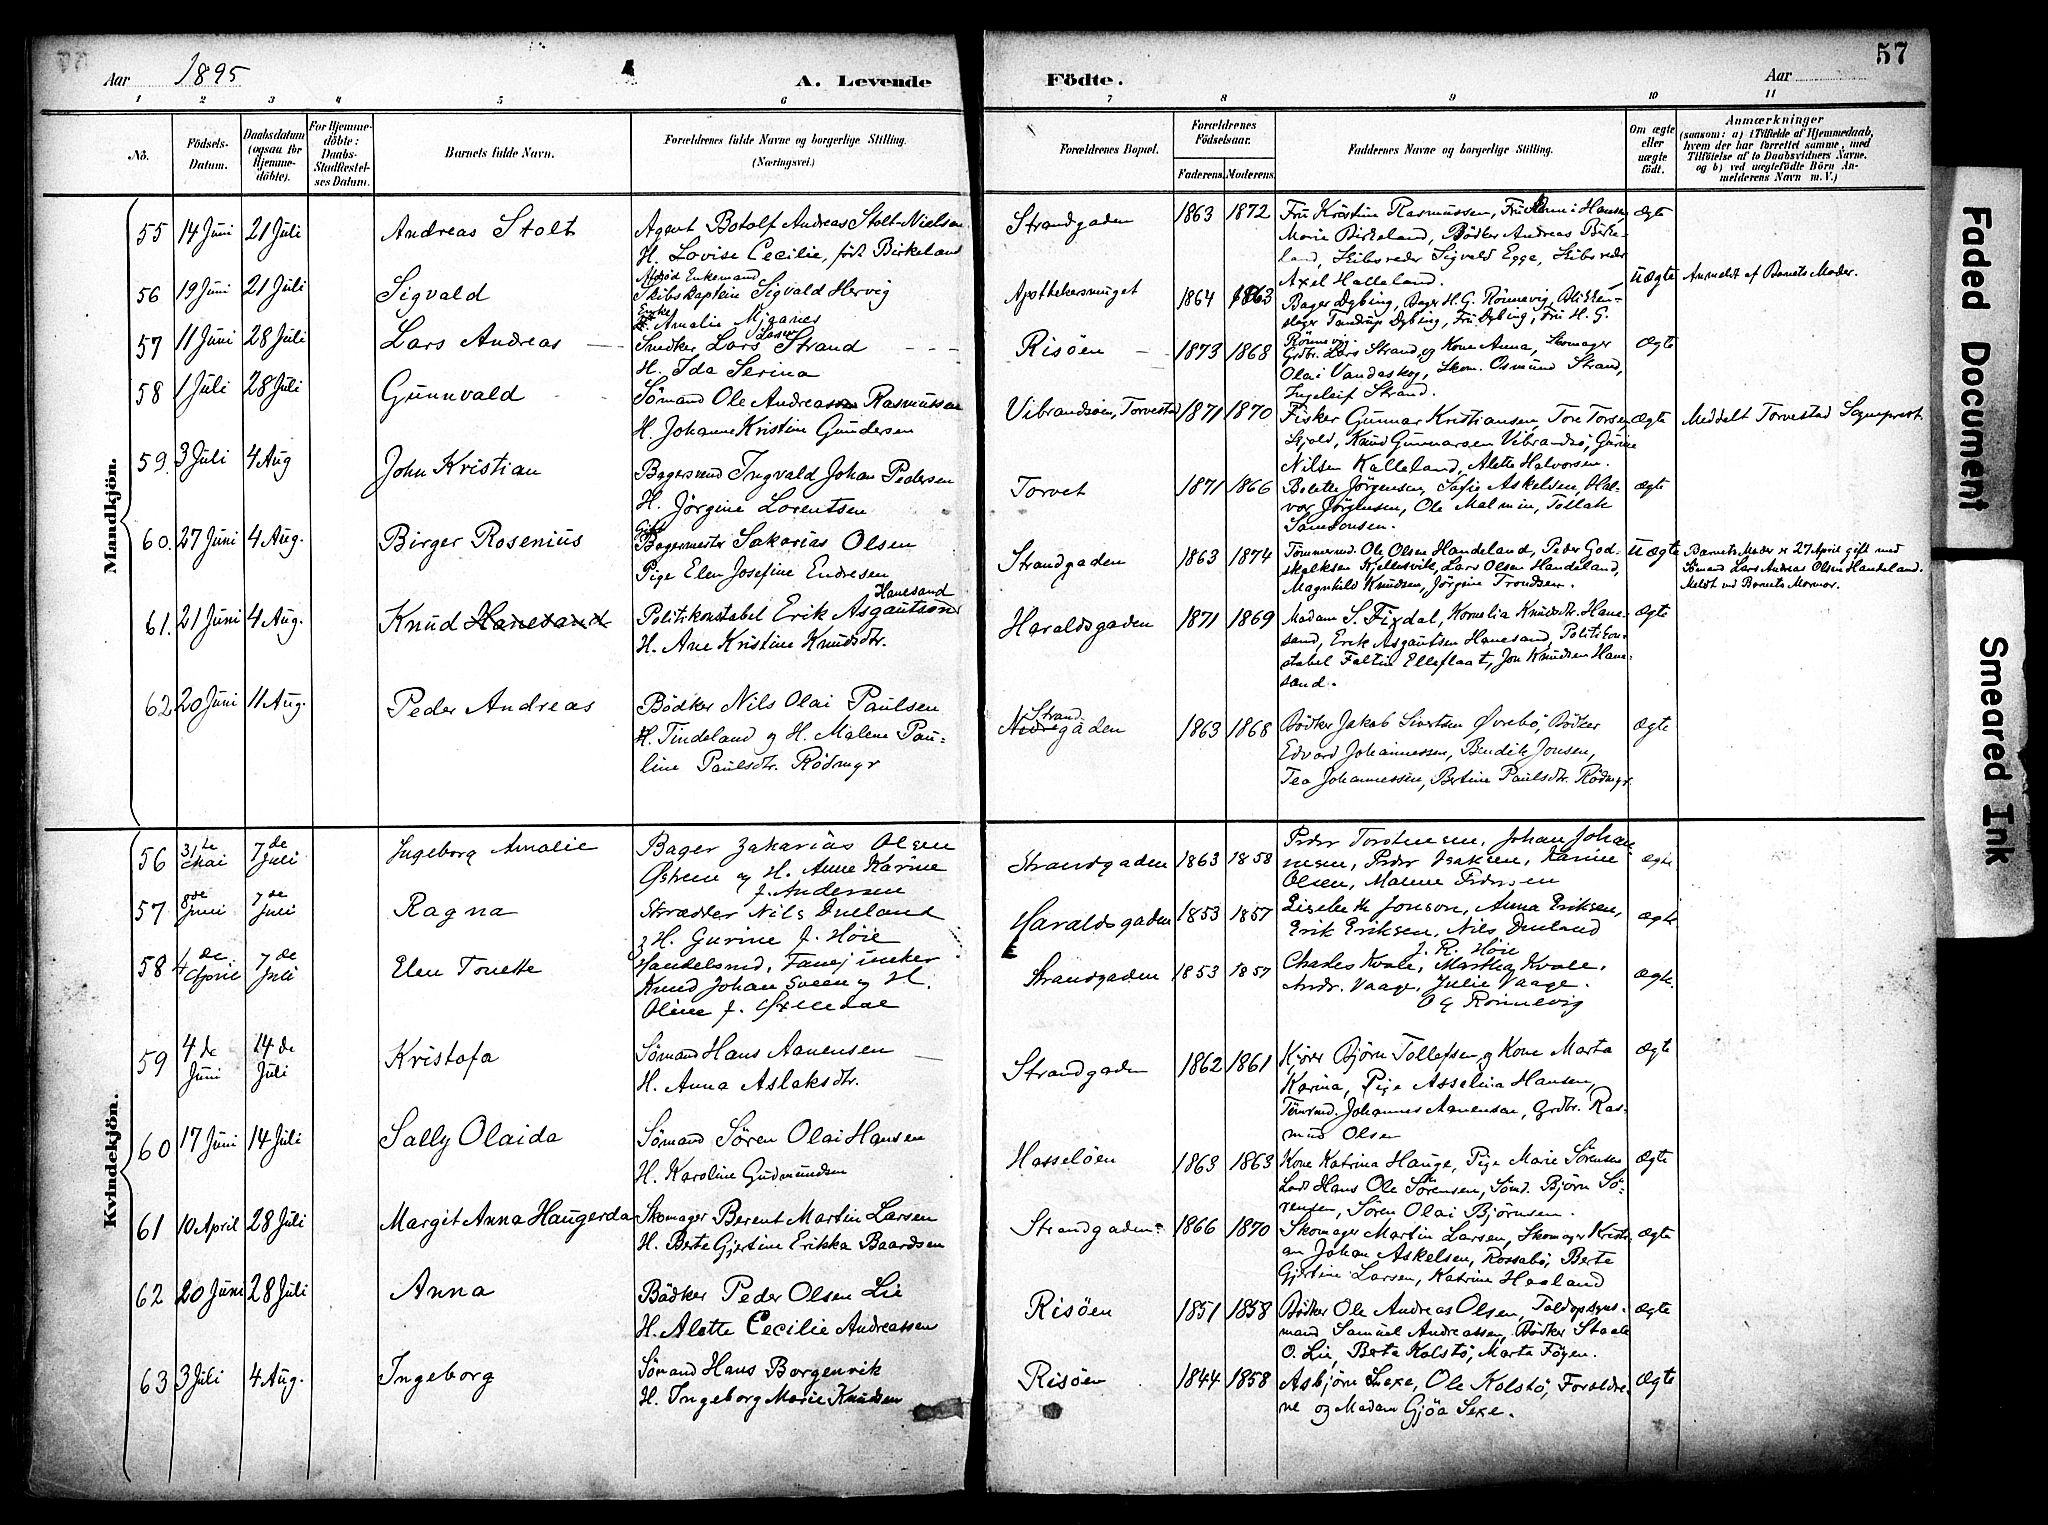 57
Aar 1895
A. Levende Födte.
Aar
1 2 3 4 5 6 7 8 9 10 11
No.
Födsels-Datum.
Daabsdatum (ogsaa for Hjemme-döbte).
For Hjemme-döbte: Daabs-Stadfæstel-ses Datum.
Barnets fulde Navn.
Forældrenes fulde Navne og borgerlige Stilling. (Næringsvei.)
Forældrenes Bopæl.
Forældrenes Födselsaar.
Faderens. Moderens.
Faddernes Navne og borgerlige Stilling.
Om ægte eller uægte födt.
Anmærkninger
(saasom: a) i Tilfælde af Hjemmedaab, hvem der har forrettet samme, med Tilföielse af to Daabsvidners Navne, og b) ved uægtefödte Börn Anmelderens Navn m. V.)
Mandkjön.
55 14 Juni 21 Juli Andreas Stolt
Agent Botolf Andreas Stolt-Nielsen
H. Lovise Cecilie, født Birkeland
Strandgaden 1863 1872
Fru Kristine Rasmussen, Fru Hansen
Marie Birkeland, Bödker Andreas Birke-
land, Skibsreder Sigvald Egge, Skibsreder
Axel Halleland.
ægte
56 19 Juni 21 Juli Sigvald
Enkemand
Skibskaptein Sigvald Hervig
Enke Amalie Mjaanes
Apothekersmuget 1864 1863
Bager Dybing, Bager H. G. Rönnevig, Blikken-
slager Tandrup Dybing, Fru Dybing, Fru H. G.
Rönnevig.
Uægte Anmeldt af Barnets Moder.
57 11 Juni 28 Juli Lars Andreas
Snedker Lars Larsen Strand
H. Ida Serina
Risöen 1873 1868
Grdbr. Lars Strand og Kone Anna, Skomager
Olai Vandaskog, Skom. Osmund Strand,
Ingeleif Strand.
ægte
58 1 Juli 28 Juli Gunnvald
Sömand Ole Andreassen Rasmussen
H. Johanne Kristine Gundersen
Vibrandsöen, Torvestad 1871 1870
Fisker Gunnar Kristiansen, Tore Torsen
Skjold, Knud Gunnarsen Vibrandsö, Gurine
Nilsen Kalleland, Alette Halvorsen.
ægte Meddelt Torvestad Sogneprest
59. 3 Juli 4 Aug John Kristian
Bagersvend Ingvald Johan Pedersen
H. Jörgine Lorentsen
Torvet 1871 1866
Bolette Jörgensen, Sofie Askelsen, Hal-
vor Jörgensen, Ole Malmin, Tollak
Samsonsen.
ægte
60. 27 Juni 4 Aug. Birger Rosenius
Gift
Bagermester Sakarias Olsen
Pige Elen Josefine Endresen
Strandgaden 1863 1874
Tömmermd. Ole Olsen Handeland, Peder God-
skalksen Kjellesvik, Lars Olsen Handeland,
Magnhild Knudsen, Jörgine Trondsen.
Uægte Barnets Moder er 27 April gift med
Sömand Lars Andreas Olsen Handeland.
Meldt ved Barnets Mormor.
61. 21 Juni 4 Aug. Knud Hanesand
Politikonstabel Erik Asgautson Hanesand
H. Ane Kristine Knudsdtr.
Haraldsgaden 1871 1869
Madam S. Fixdal, Kornelia Knudsdtr. Hane-
sand, Erik Asgautsen Hanesand, Politikon-
stabel Faltin Elleflaat, Jon Knudsen Hane-
sand.
ægte
62 20 Juni 11 Aug. Peder Andreas
Bödker Nils Olai Paulsen
H. Tindeland og H. Malene Pau-
line Paulsdtr. Rödmyr
Strand.
Nedregaden 1863 1868
Bödker Jakob Sivertsen Øvrebö, Bödker
Edvard Johannessen, Bendik Jonsen,
Tea Johannessen, Bertine Paulsdtr. Rödmyr.
ægte
Kvindekjön.
56 31te Mai 7de Juli Ingeborg Amalie
Bager Zakarias Olsen
Østrem og H. Anne Karine
f. Andersen
Strandgaden 1863 1858
Peder Torstensen, Johan Johan-
nesen, Peder Isaksen, Karine
Olsen, Malene Pedersen
ægte
57 8de Juni 7de Juli Ragna
Skrædder Nils Dueland
& H. Gurine f. Höie
Haraldsgaden 1853 1857
Liesbeth Jonson, Anna Eriksen,
Erik Eriksen, Nils Dueland
J. R. Höie
ægte
58 4de April 7de Juli Elen Tonette
Handelsmd. Fanejunker
Knud Johan Sveen og H.
Oline f. Øxendal
Strandgaden 1853 1857
Charles Kvale, Martha Kvale,
Andr. Vaage, Julie Vaage.
O G Rönnevig
ægte.
59 4de Juni 14de Juli Kristofa
Sömand Hans Aanensen
H. Anna Aslaksdtr.
Strandgaden 1862 1861
Kjörer Björn Tollefsen og Kone Marta
Karina, Pige Asselina Hansen,
Tömmrmd. Johannes Aanensen, Grdbr. Ras-
mus Olsen
ægte
60 17 Juni 14 Juli Sally Olaida
Sömand Sören Olai Hansen
H. Karoline Gudmundsen
Hasselöen 1863 1863
Kone Katrina Hauge, Pige Marie Sörensen
Lods Hans Ole Sörensen, Sömd. Björn Sö-
rensen, Sören Olai Björnsen.
ægte
61 10 April 28 Juli Margit Anna Haugerda
Skomager Berent Martin Larsen
H. Berte Gjertine Erikka Baardsen
Strandgaden 1866 1870
Skomager Martin Larsen, Skomager Kristi-
an Johan Askelsen, Rossabö, Berte
Gjertine Larsen, Katrine Haaland
ægte
62 20 Juni 28 Juli Anna
Bödker Peder Olsen Lie
H. Alette Cecilie Andreassen
Risöen 1851 1858
Bödker Ole Andreas Olsen, Toldopsyns-
mand Samuel Andreassen, Bödker Staale
O. Lie, Berta Kolstö, Marta Föyen.
ægte
63 3 Juli 4 Aug. Ingeborg
Sömand Hans Borgenvik
H. Ingeborg Marie Knudsen
Risöen 1844 1858
Asbjörn Sexe, Ole Kolstö, Foreldre-
ne og Madam Gjöa Sexe.
ægte
Faded Document
Smeared Ink